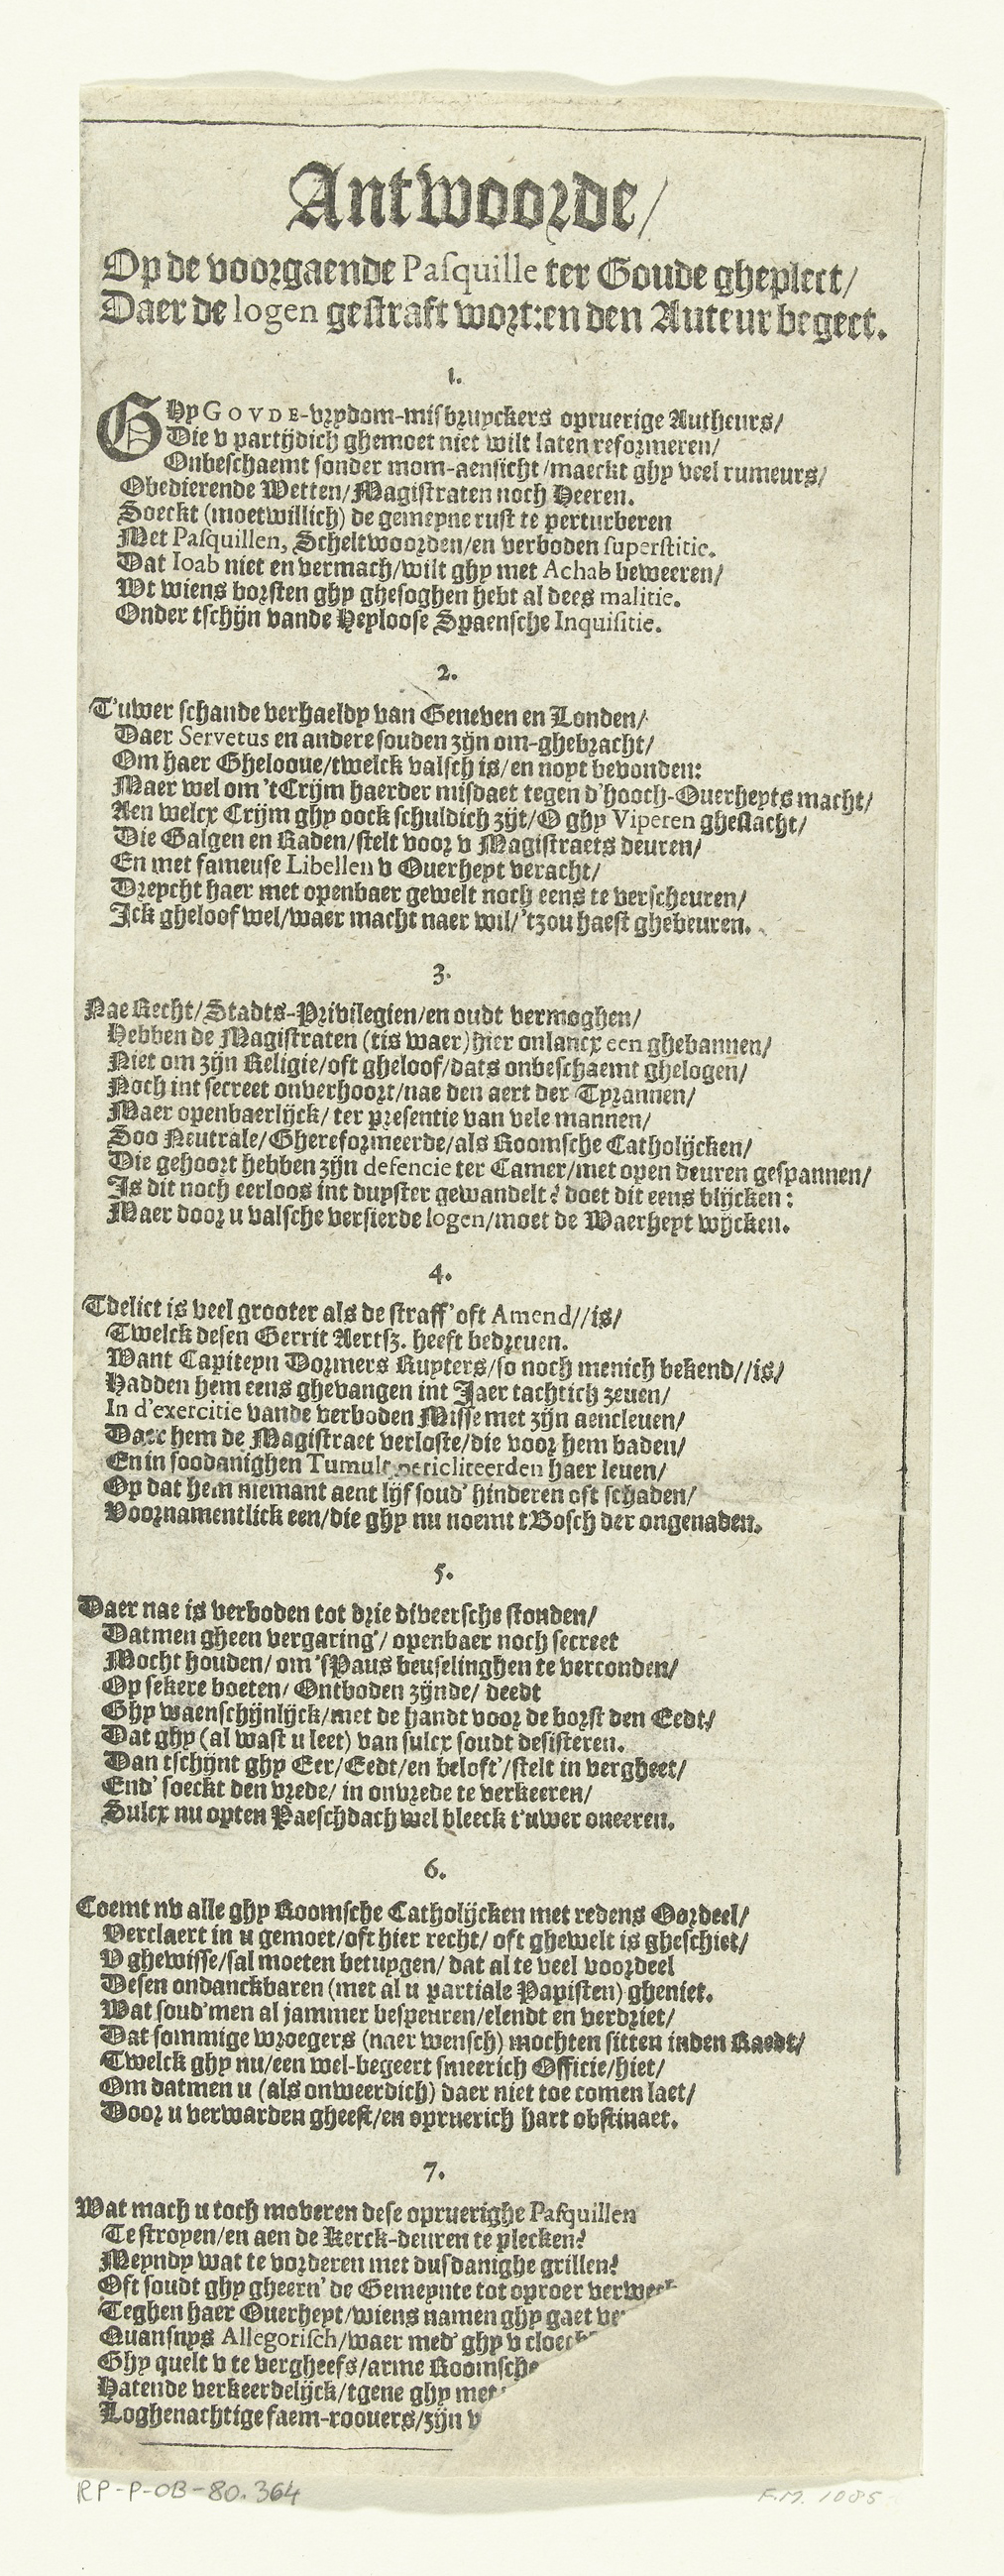 Antwoorde/
Op de voorgaende Pasquille ter Goude gheplect/
Daer de logen gestraft wort: en den Auteur begeet.
1.
GHy GOVDE-vrydom-misbruyckers opruerige Autheurs/
Die v partijdich ghemoet niet wilt laten reformeren/
Onbeschaemt sonder mom-aensicht/maeckt ghy veel rumeurs/
Obedierende Wetten/Magistraten noch Heeren.
Soeckt (moetwillich) de gemeyne rust te perturberen
Met Pasquillen, Scheltwoorden/en verboden superstitie.
Dat Ioab niet en vermach/wilt ghy met Achab beweeren/
Wt wiens borsten ghy ghesoghen hebt al dees malitie.
Onder tschijn vande Heyloose Spaensche Inquisitie.
2.
T'uwer schande verhaeldy van Geneven en Londen/
Daer Servetus en andere souden zijn om-ghebracht/
Om haer Ghelooue/twelck valsch is/en noyt bevonden:
Maer wel om 'tCrijm haerder misdaet tegen d'hooch-Ouerheyts macht/
Aen welcx Crijm ghy oock schuldich zijt/O ghy Viperen gheslacht/
Die Galgen en Raden/stelt voor v Magistraets deuren/
En met fameuse Libellen v Ouerheyt veracht/
Dreycht haer met openbaer gewelt noch eens te verscheuren/
Ick gheloof wel/waer macht naer wil/'tzou haest ghebeuren.
3.
Nae Recht/Stadts-Privilegien/en oudt vermoghen/
Hebben de Magistraten (tis waer) hier onlancx een ghebannen/
Niet om zijn Religie/oft gheloof/dats onbeschaemt ghelogen/
Noch int secreet onverhoort/nae den aert der Tyrannen/
Maer openbaerlijck/ ter presentie van vele mannen/
Soo Neutrale/Ghereformeerde/als Roomsche Catholijcken/
Die gehoort hebben zijn defencie ter Camer/met open deuren gespannen/
Is dit noch eerloos int duyster gewandelt? doet dit eens blijcken:
Maer door u valsche versierde logen/moet de Waerheyt wijcken.
4.
Tdelict is veel grooter als de straff' oft Amend//is/
Twelck desen Gerrit Aertsz. heeft bedreuen.
Want Capiteyn Dormers Ruyters/so noch menich bekend//is/
Hadden hem eens ghevangen int Jaer tachtich zeuen/
In d'exercitie vande verboden Misse met zijn aencleuen/
Daer hem de Magistraet verloste/die voor hem baden/
En in soodanighen Tumult pericliteerden haer leuen/
Op dat hem niemant aent lijf soud' hinderen oft schaden/
Voornamentlick een/die ghy nu noemt tBosch der ongenaden.
5.
Daer nae is verboden tot drie diveersche stonden/
Datmen gheen vergaring'/ openbaer noch secreet
Mocht houden/ om 'sPaus beuselinghen te verconden/
Op sekere boeten/ Ontboden zijnde/ deedt
Ghy waenschijnlijck/met de handt voor de borst den Eedt/
Dat ghy (al wast u leet) van sulcx soudt desisteren.
Dan tschijnt ghy Eer/Eedt/en beloft'/stelt in vergheet/
End' soeckt den vrede/ in onvrede te verkeeren/
Sulcx nu opten Paeschdach wel bleeck t'uwer oneeren.
6.
Coemt nv alle ghy Roomsche Catholijcken met redens Oordeel/
Verclaert in u gemoet/oft hier recht/ oft ghewelt is gheschiet/
V ghewisse/sal moeten betuygen/ dat al te veel voordeel
Desen ondanckbaren (met al u partiale Papisten) gheniet.
Wat soud'men al jammer bespeuren/elendt en verdriet/
Dat sommige wroegers (naer wensch) mochten sitten inden Raedt/
Twelck ghy nu/een wel-begeert smeerich Officie/hiet/
Om datmen u (als onweerdich) daer niet toe comen laet/
Door u verwarden gheest/en opruerich hart obstinaet.
7.
Wat mach u toch moveren dese opruerighe Pasquillen
Te stroyen/en aen de Kerck-deuren te plecken?
Meyndy wat te vorderen met dusdanighe grillen?
Oft soudt ghy gheern' de Gemeynte tot oproer
Teghen haer Ouerheyt/wiens namen ghy gaet
Quansuys Allegorisch/waer med' ghy v
Ghy quelt v te vergheefs/arme Roomsche
Hatende verkeerdelijck/tgene ghy met
Loghenachtige faem-roouers/zijn
RP-P-OB-80.364
F.M. 1085